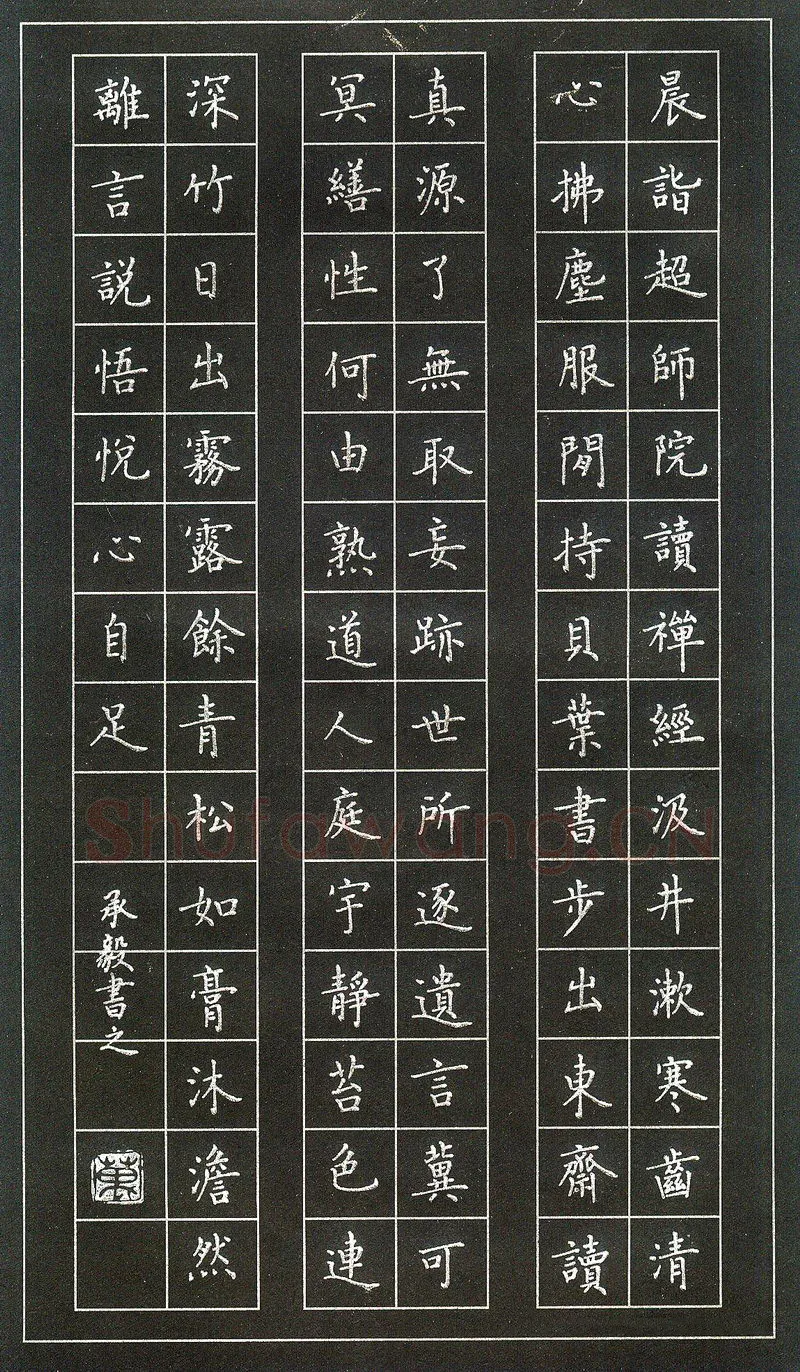 晨詣超師院讀禪經汲井漱寒齒清
心拂塵服閒持貝葉書步出東齋讀
真源了無取妄跡世所逐遺言冀可
冥繕性何由熟道人庭宇靜苔色連
深竹日出霧露餘青松如膏沐澹然
離言說悟悅心自足
承毅書之
Shufawang.CN